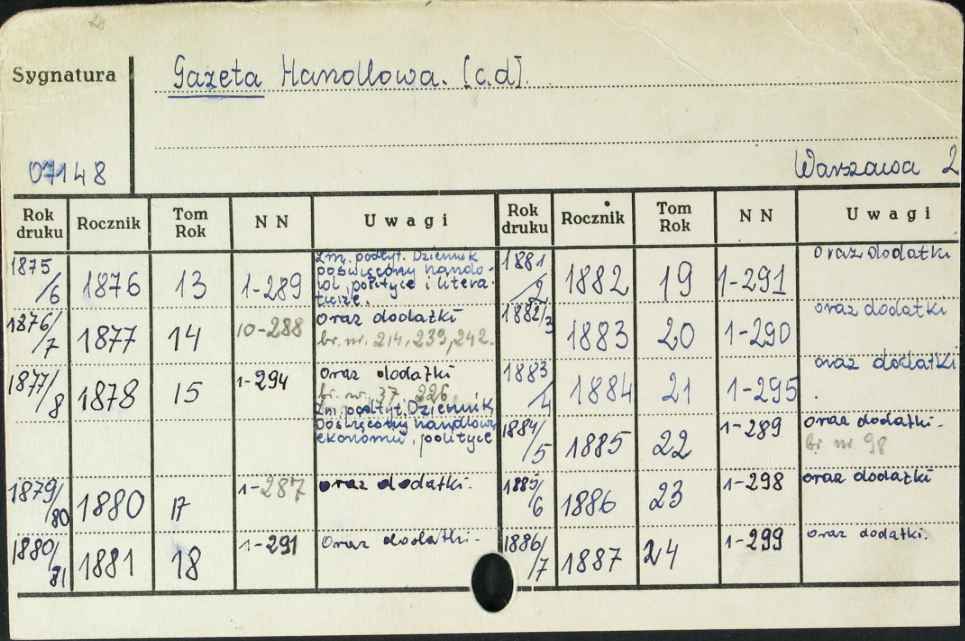 Sygnatura
Gazeta Handlowa. [c.d].
07148
Warszawa 2
Rok druku Rocznik Tom Rok N N Uwagi Rok druku Rocznik Tom Rok N N Uwagi
1875/6 1876 13 1-289
Zm. podtyt. Dziennik
poświęcony hando-
wi, polityce i litera-
turze.
1876/7 1877 14 10-288 oraz dodatki
br. nr. 214, 239, 242.
1877/8 1878 15 1-294 oraz dodatki
br. nr. 37, 226
Zm. podtyt. Dziennik
Poświęcony handlowi,
ekonomii, polityce
1879/80 1880 17 1-287 oraz dodatki.
1880/81 1881 18 1-291 oraz dodatki-
1881/2 1882 19 1-291 oraz dodatki
1882/3 1883 20 1-290 oraz dodatki
1883/4 1884 21 1-295 oraz dodatki
1884/5 1885 22 1-289 oraz dodatki-
br nr 98
1885/6 1886 23 1-298 oraz dodatki
1886/7 1887 24 1-299 oraz dodatki.